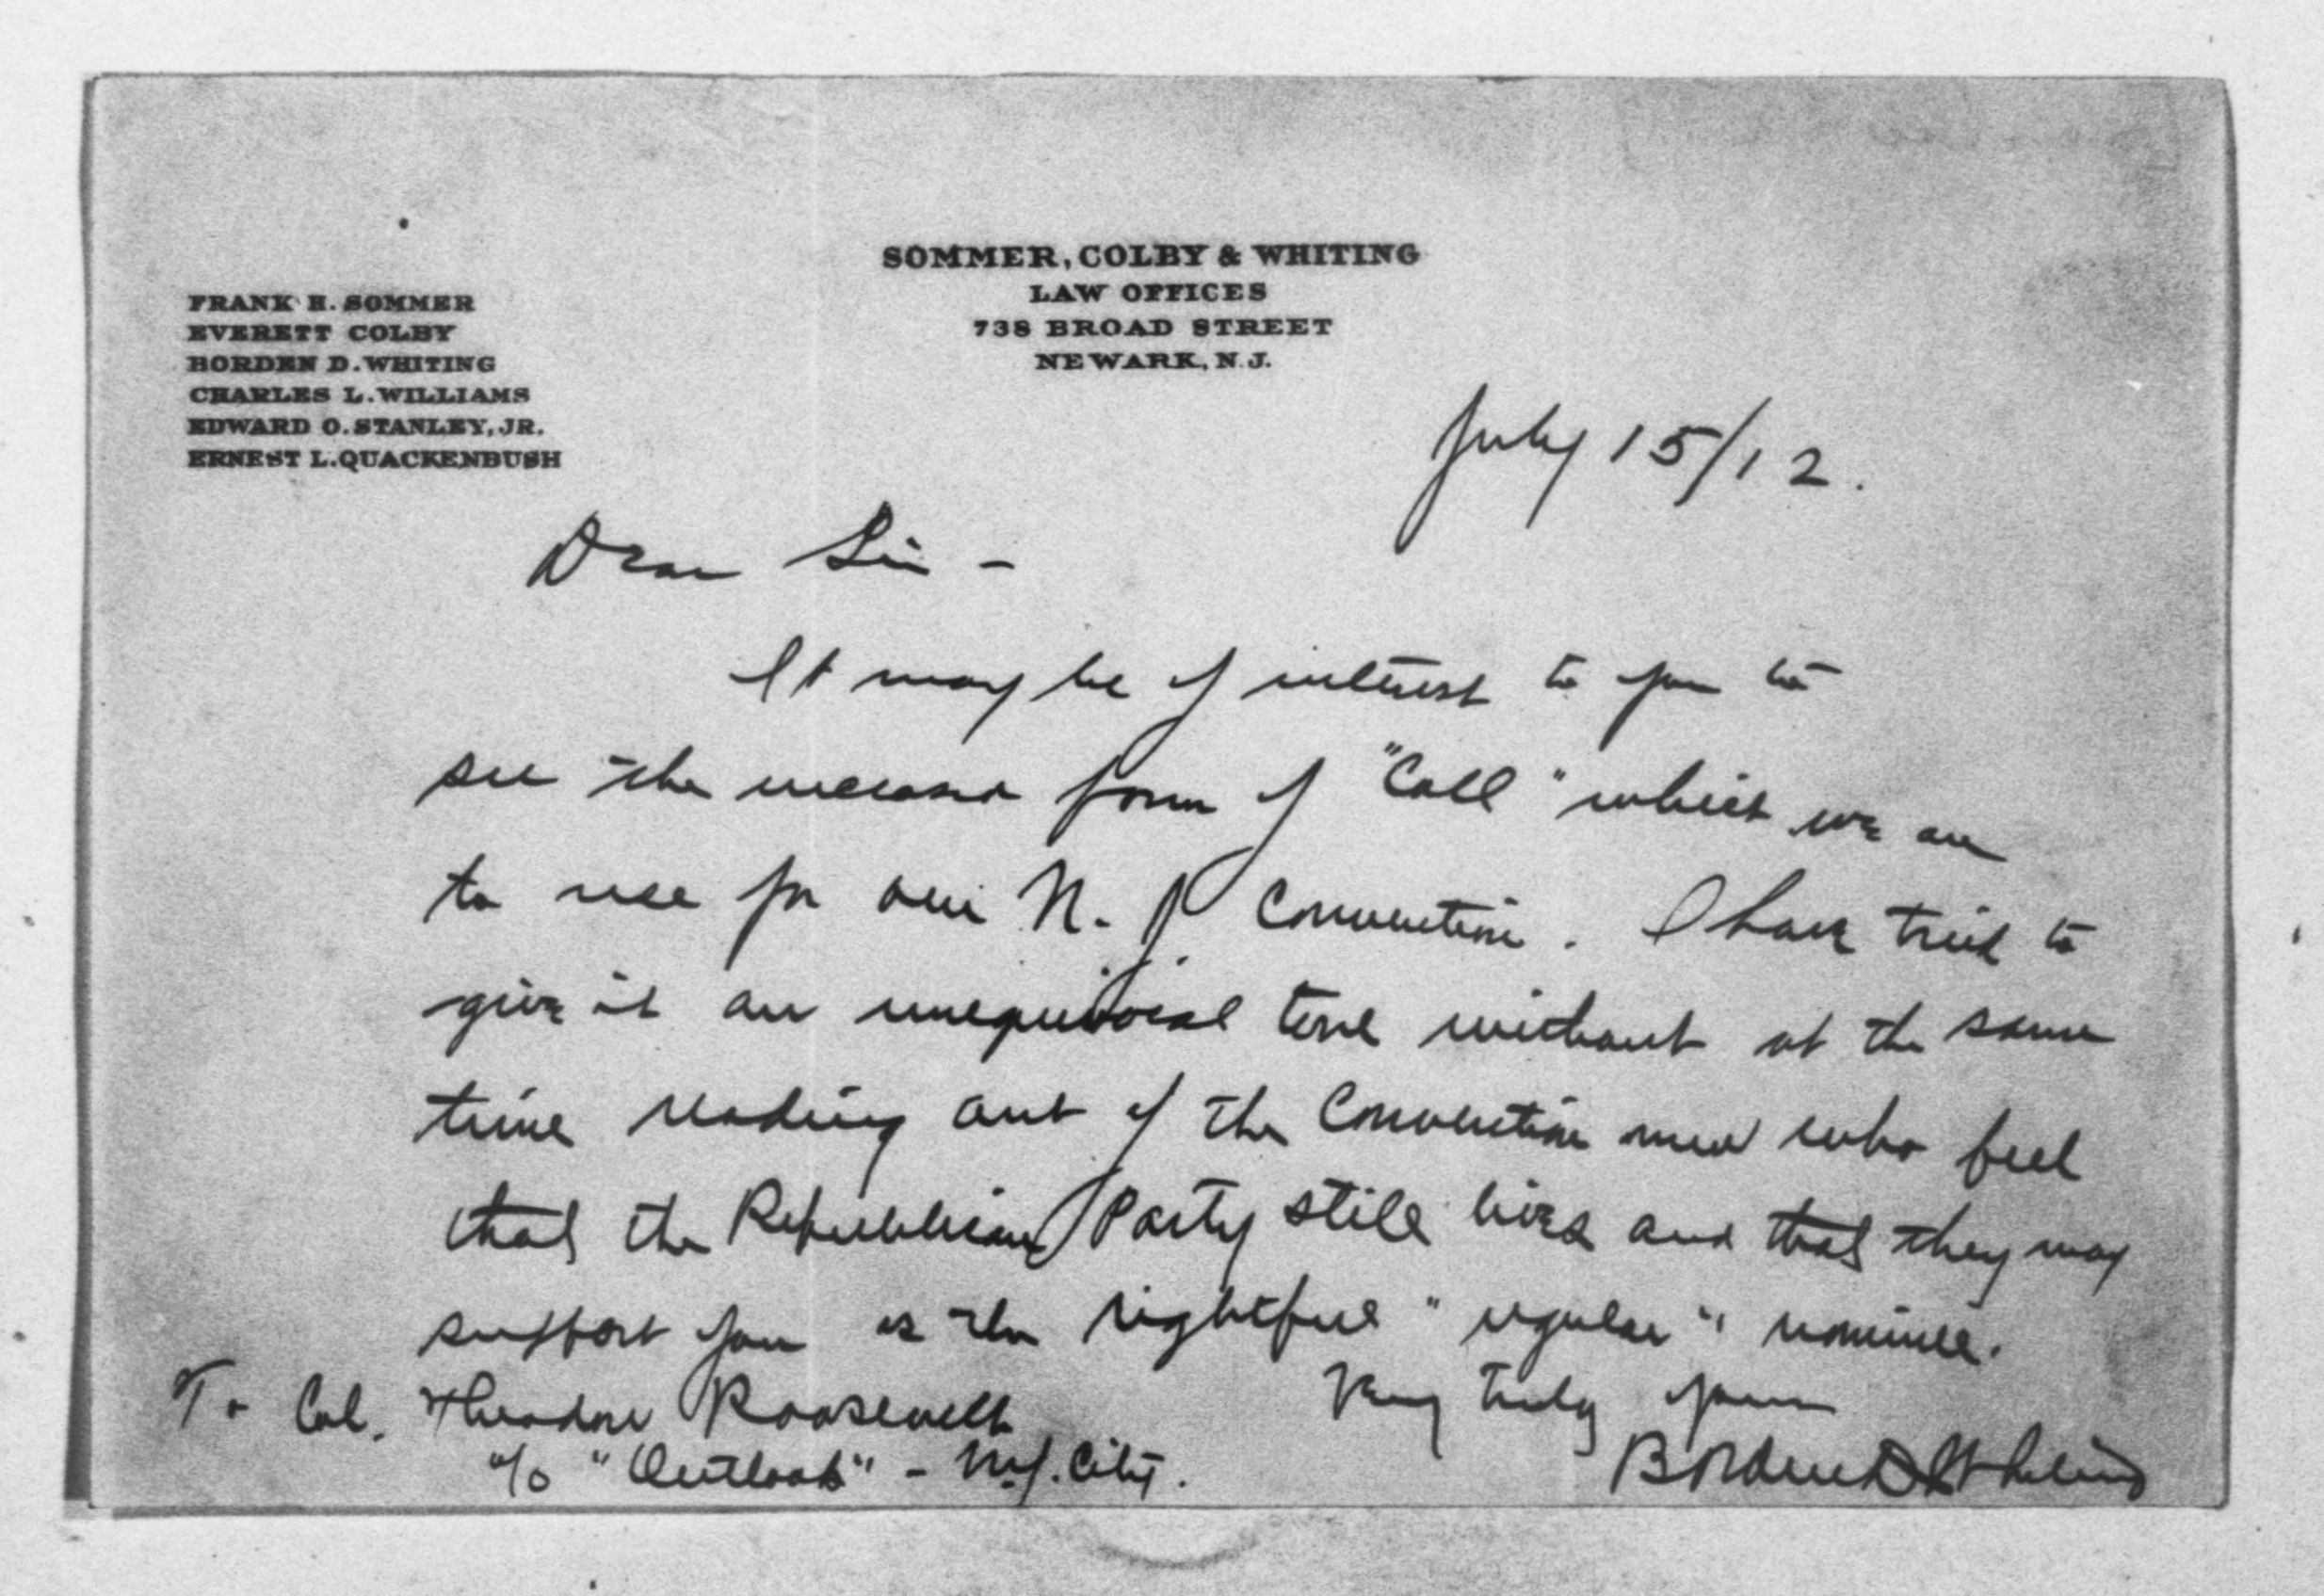 SOMMER, COLBY & WHITING
LAW OFFICES
738 BROAD STREET
NEWARK, N.J.
FRANK H. SOMMER
EVERETT COLBY
BORDEN D. WHITING
CHARLES L. WILLIAMS
EDWARD O. STANLEY, JR.
ERNEST L. QUACKENBUSH
July 15/12.
Dear Sir -
It may be of interest to you to
see the form of "Call" which we are
to use for our N. J. Convention. I have tried to
give it an unequivocal tone without at the same
time reading out of the Convention men who feel
that the Republican Party still lives and that they may
support you as the rightful "regular" nominee.
Very truly yours
Borden D Whiting
To Col. Theodore Roosevelt
c/o "Outlook" - N.Y. City.